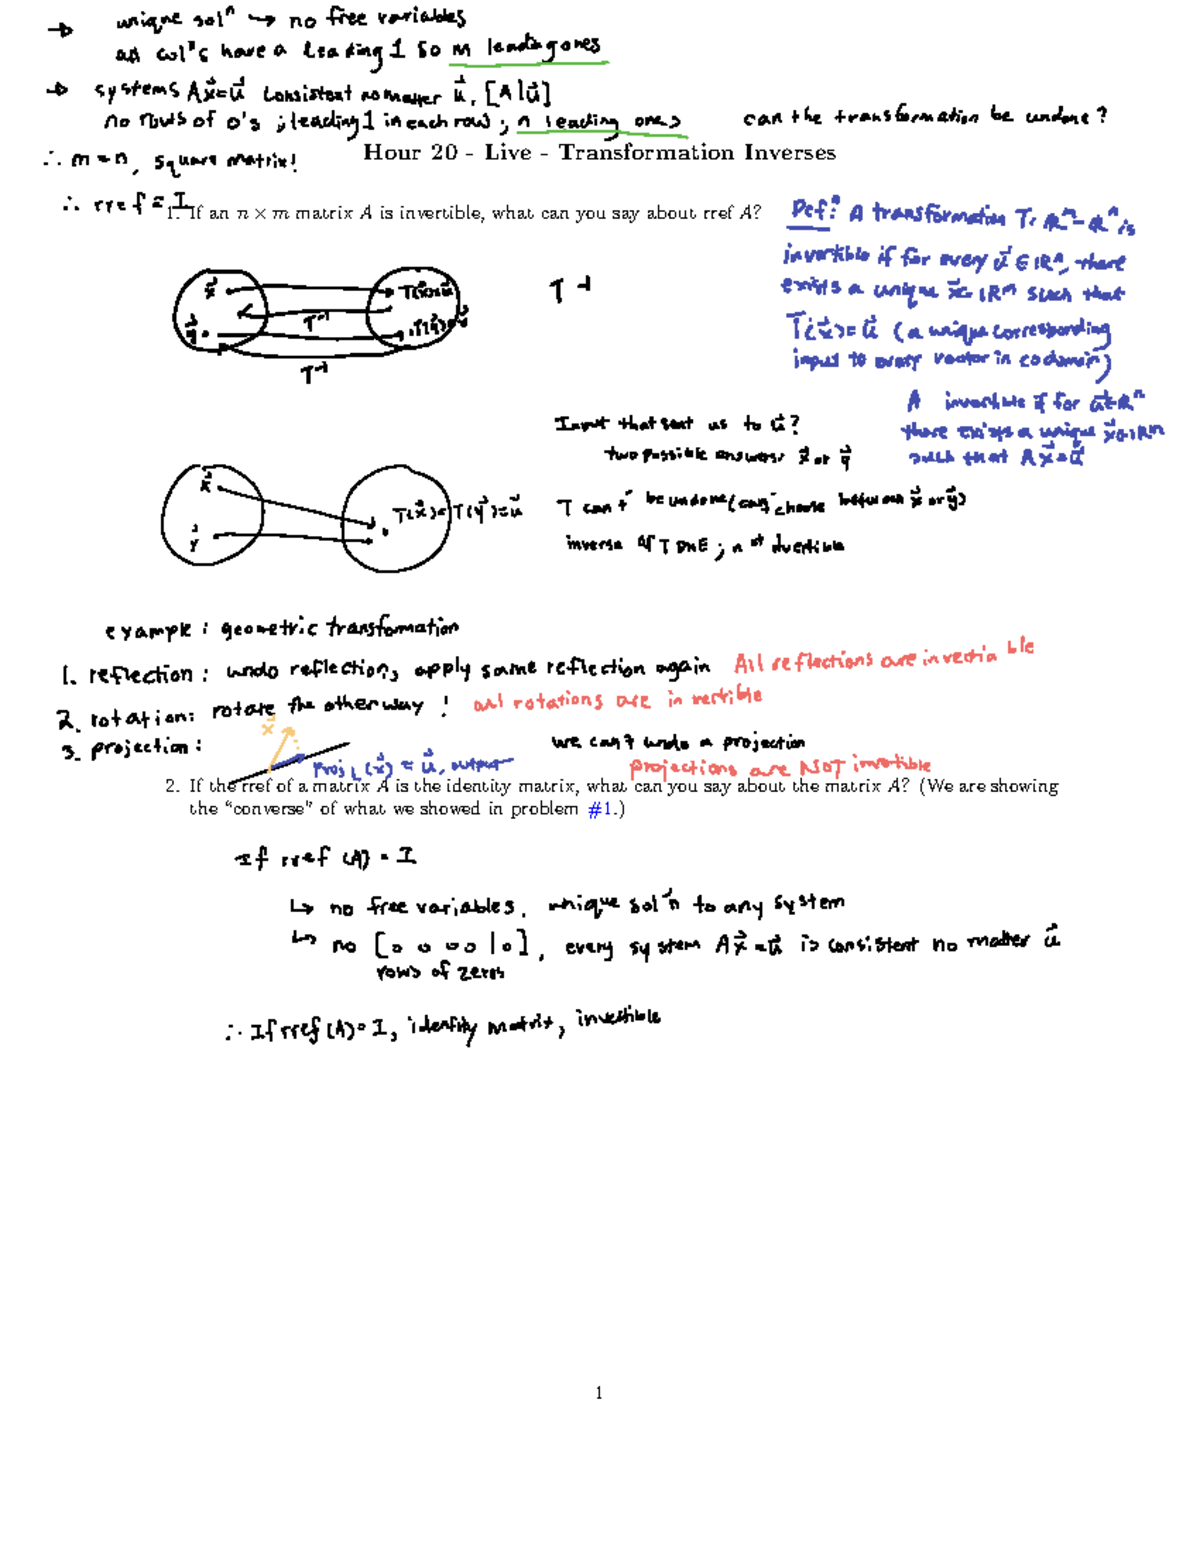 → unique solⁿ → no free variables
all col's have a leading 1 so m leading ones
→ systems Ax⃗=u⃗ consistent no matter u⃗, [A|u⃗]
no rows of 0's ; leading 1 in each row ; n leading ones
can the transformation be undone?
∴ m=n, square matrix!
Hour 20 - Live - Transformation Inverses
∴ rref = I
1. If an n × m matrix A is invertible, what can you say about rref A?
Defⁿ: A transformation T: ℝᵐ→ℝⁿ is
invertible if for every u⃗ ∈ ℝⁿ, there
exists a unique x⃗ ∈ ℝᵐ such that
T(x⃗)=u⃗ (a unique corresponding
input to every vector in codomain)
x⃗ T(x⃗)=u⃗
T⁻¹
T⁻¹
y⃗ T(y⃗)=v⃗
T⁻¹
A invertible if for u⃗∈ℝⁿ
there exists a unique x⃗∈ℝᵐ
such that Ax⃗=u⃗
Input that sent us to u⃗?
two possible answers x⃗ or y⃗
x⃗
y⃗
T(x⃗)=T(y⃗)=u⃗
T can't be undone (can't choose between x⃗ or y⃗)
inverse of T DNE ; not invertible
example : geometric transformation
1. reflection : undo reflection, apply same reflection again All reflections are invertible
2. rotation: rotate the other way ! all rotations are invertible
3. projection :
x⃗
proj_L(x⃗) = u⃗, output
we can't undo a projection
projections are NOT invertible
2. If the rref of a matrix A is the identity matrix, what can you say about the matrix A? (We are showing
the “converse” of what we showed in problem #1.)
If rref (A) = I
↳ no free variables, unique solⁿ to any system
↳ no [0 0 0 0 | 0], every system Ax⃗=u⃗ is consistent no matter u⃗
rows of zeros
∴ If rref(A)=I, identity matrix, invertible
1